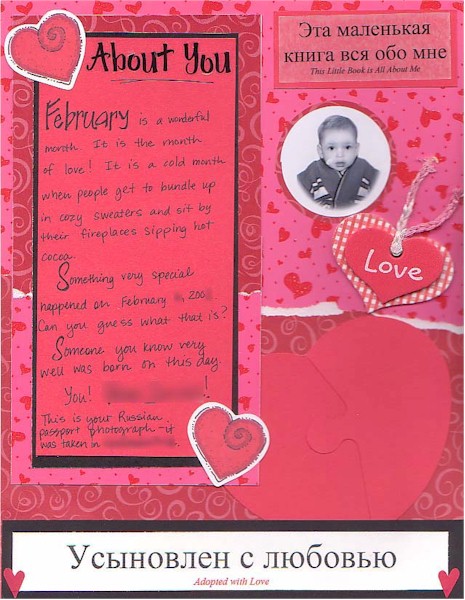 About You
February is a wonderful
month. It is the month
of love! It is a cold month
when people get to bundle up
in cozy sweaters and sit by
their fireplaces sipping hot
cocoa.
Something very special
happened on February , 200
Can you guess what that is?
Someone you know very
well was born on this day.
You! !
This is your Russian
passport photograph - it
was taken in
Эта маленькая
книга вся обо мне
This Little Book is All About Me
Love
Усыновлен с любовью
Adopted with Love